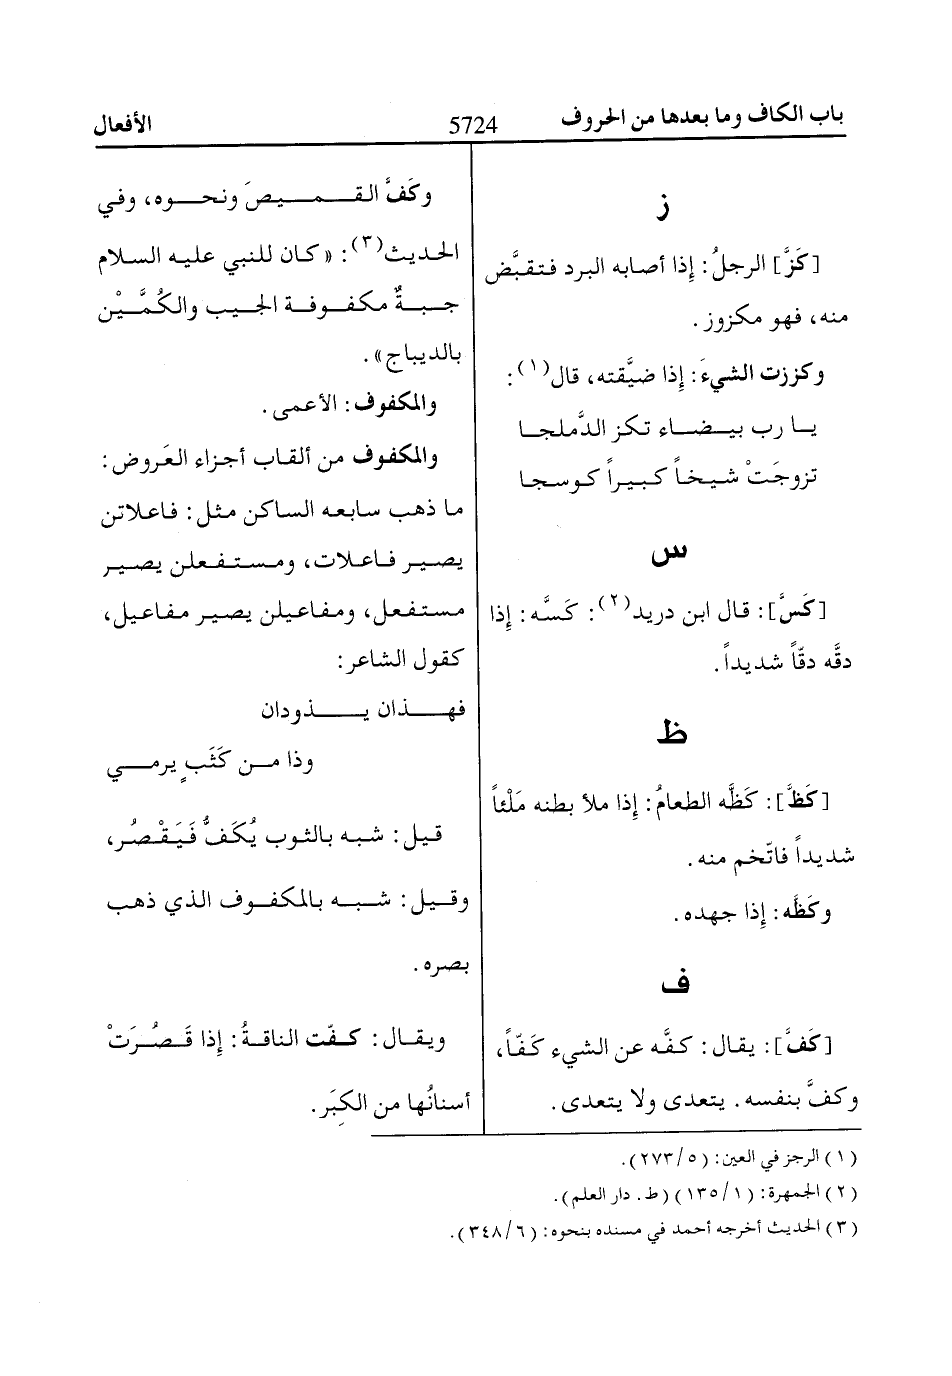 باب الكاف وما بعدها من الحروف
5724
الأفعال
ز
[كَزَّ] الرجلُ: إذا أصابه البرد فتقبَّض
منه، فهو مكزوز.
وكززت الشيءَ: إذا ضيَّقته، قال(١):
يا رب بيضاء تكز الدَّملجا
تزوجَتْ شيخاً كبيراً كوسجا
س
[كَسَّ]: قال ابن دريد(٢): كسَّه: إذا
دقَّه دقّاً شديداً.
ظ
[كَظَّ]: كَظَّه الطعامُ: إذا ملأ بطنه مَلْئاً
شديداً فاتّخم منه.
وكَظَّه: إذا جهده.
ف
[كَفَّ]: يقال: كفَّه عن الشيء كَفّاً،
وكفَّ بنفسه. يتعدى ولا يتعدى.
وكَفَّ القميصَ ونحوه، وفي
الحديث(٣): «كان للنبي عليه السلام
جبةٌ مكفوفة الجيب والكُمَّيْن
بالديباج».
والمكفوف: الأعمى.
والمكفوف من ألقاب أجزاء العَروض:
ما ذهب سابعه الساكن مثل: فاعلاتن
يصير فاعلات، ومستفعلن يصير
مستفعل، ومفاعيلن يصير مفاعيل،
كقول الشاعر:
فهذان يذودان
وذا من كَثَبٍ يرمي
قيل: شبه بالثوب يُكَفُّ فَيَقْصُر،
وقيل: شبه بالمكفوف الذي ذهب
بصره.
ويقال: كفّت الناقةُ: إذا قَصُرَتْ
أسنانُها من الكِبَر.
(١) الرجز في العين: (٥/٢٧٣).
(٢) الجمهرة: (١/١٣٥) (ط. دار العلم).
(٣) الحديث أخرجه أحمد في مسنده بنحوه: (٦/٣٤٨).